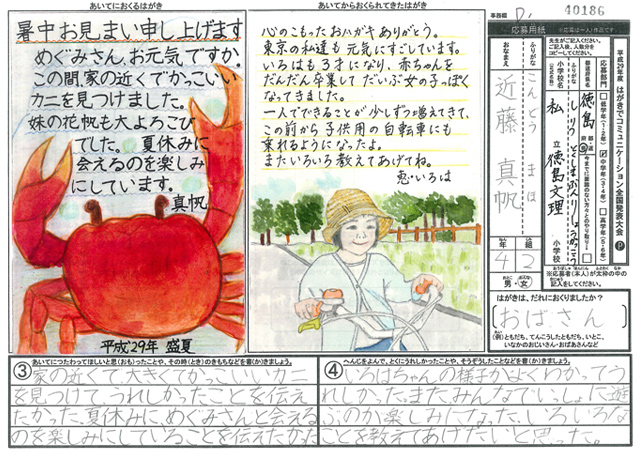 あいてにおくるはがき
暑中お見まい申し上げます
めぐみさん、お元気ですか。
この間、家の近くでかっこいい
カニを見つけました。
妹の花帆も大よろこび
でした。夏休みに
会えるのを楽しみ
にしています。
真帆
平成29年 盛夏
あいてからおくられてきたはがき
心のこもったおハガキありがとう。
東京の私達も元気にすごしています。
いろはも3才になり、赤ちゃんを
だんだん卒業してだいぶ女の子っぽく
なってきました。
一人でできることが少しずつ増えてきて、
この前から子供用の自転車にも
乗れるようになったよ。
またいろいろ教えてあげてね。
恵・いろは
40186
応募用紙
平成29年度 はがきでコミュニケーション全国発表大会
応募部門
低学年(1・2年)
中学年(3・4年)
高学年(5・6年)
徳島
小学校名
私立 徳島文理 小学校
ふりがな
こんどう まほ
おなまえ
近藤 真帆
4年2組
男・女
はがきは、だれにおくりましたか?
おばさん
(例)ともだち、てんこうしたともだち、いとこ、
いなかのおじいさん・おばあさんなど
③
あいてにつたわってほしいと思(おも)ったことや、その時(とき)のきもちなどを書(か)きましょう。
家の近くで大きくてかっこいいカニ
を見つけて、うれしかったことを伝え
たかった。夏休みに、めぐみさんと会える
のを楽しみにしていることを伝えたかった。
④
へんじをよんで、とくにうれしかったことや、そうぞうしたことなどを書(か)きましょう。
いろはちゃんの様子がよくわかってう
れしかった。また、みんなでいっしょに遊
ぶのが楽しみになった。いろいろな
ことを教えてあげたいと思った。